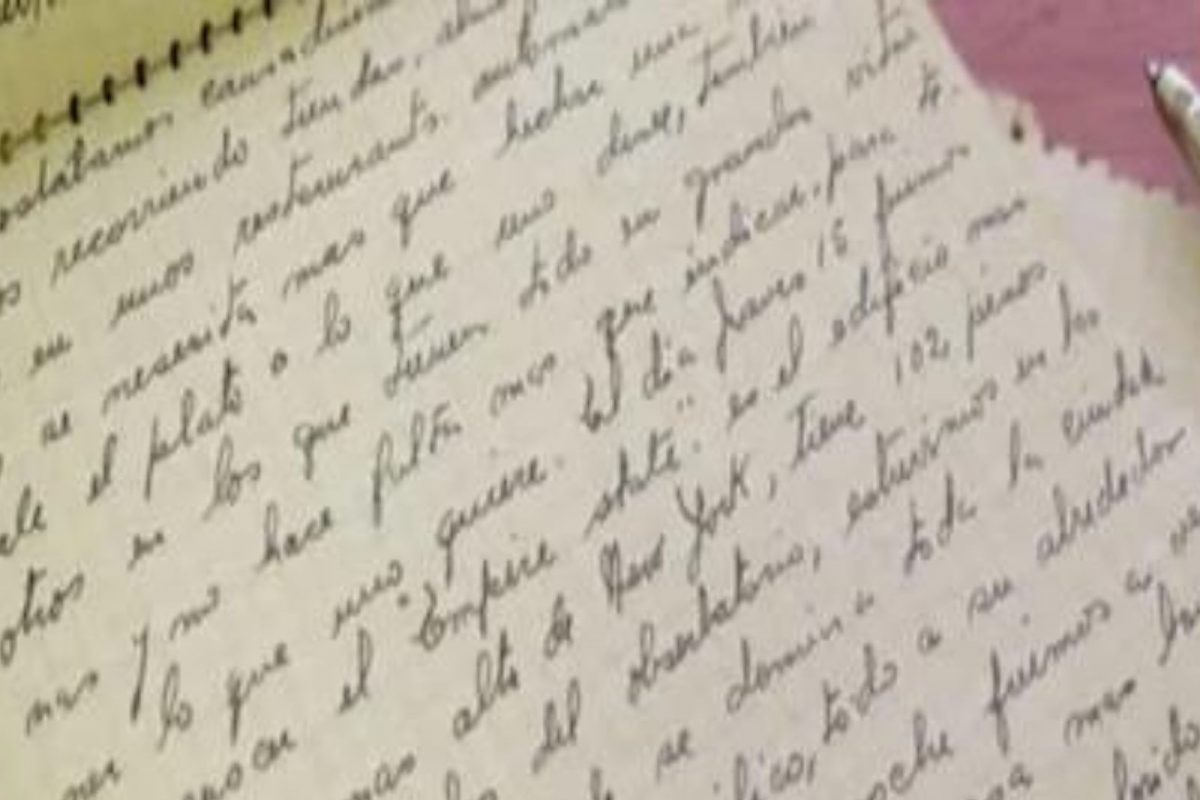 recorriendo tiendas,
en unos resteurants
se nesesita mas que hechar una
el plato o lo que uno desee, tambien
otros en los que tienen todo en grandes vitri
nas y no hace falta mas que indicar, para te
ner lo que uno quiere. El dia jueves 15 fuimos
el "Empire state". es el edificio mas
mas alto de New York, tiene 102 pisos
del obserbatorio, estuvimos en los
se domina toda la ciudad
todo a su alrededor
fuimos a
mas